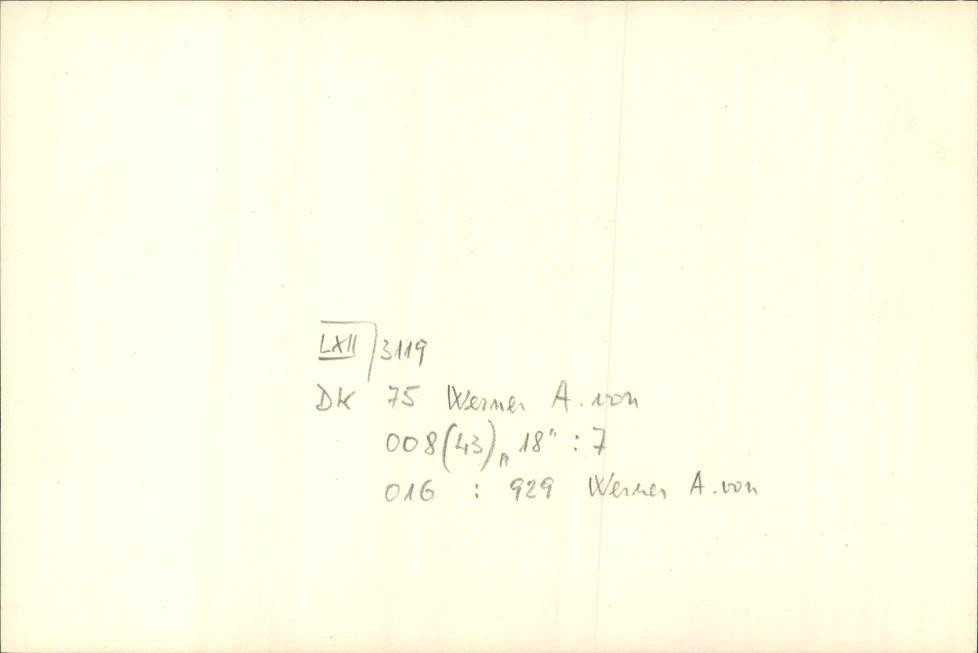 LXII/3119
DK 75 Werner A. von
008(43)„18" : 7
016 : 929 Werner A. von